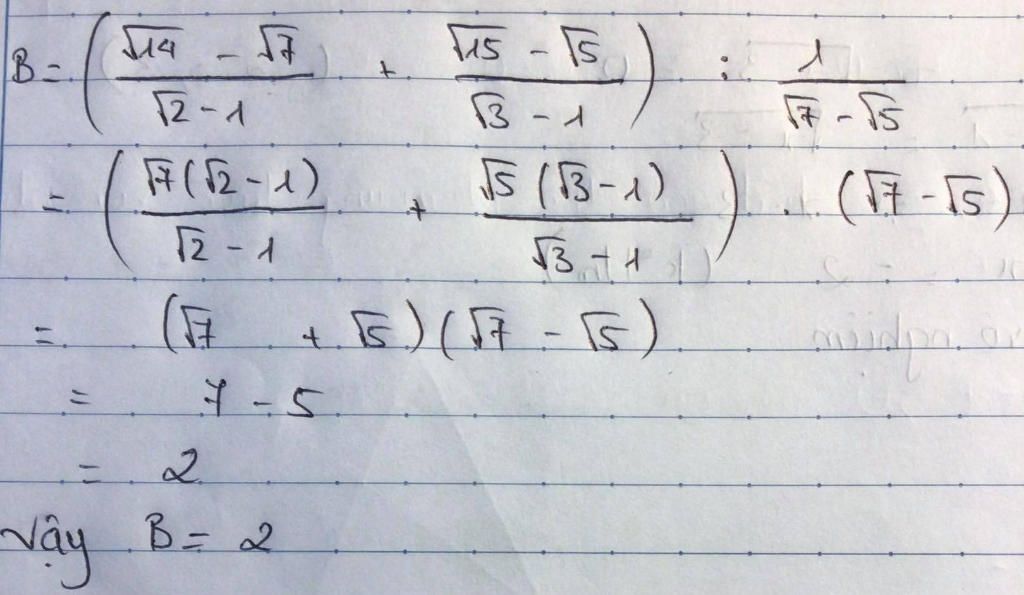 B = ( (√14 - √7)/(√2 - 1) + (√15 - √5)/(√3 - 1) ) : 1/(√7 - √5)
= ( √7(√2 - 1)/(√2 - 1) + √5(√3 - 1)/(√3 - 1) ) . (√7 - √5)
= (√7 + √5)(√7 - √5)
= 7 - 5
= 2
Vậy B = 2